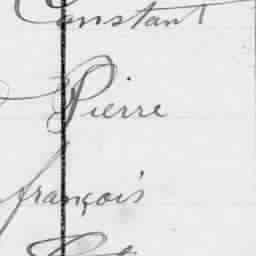 Constant
Pierre
françois